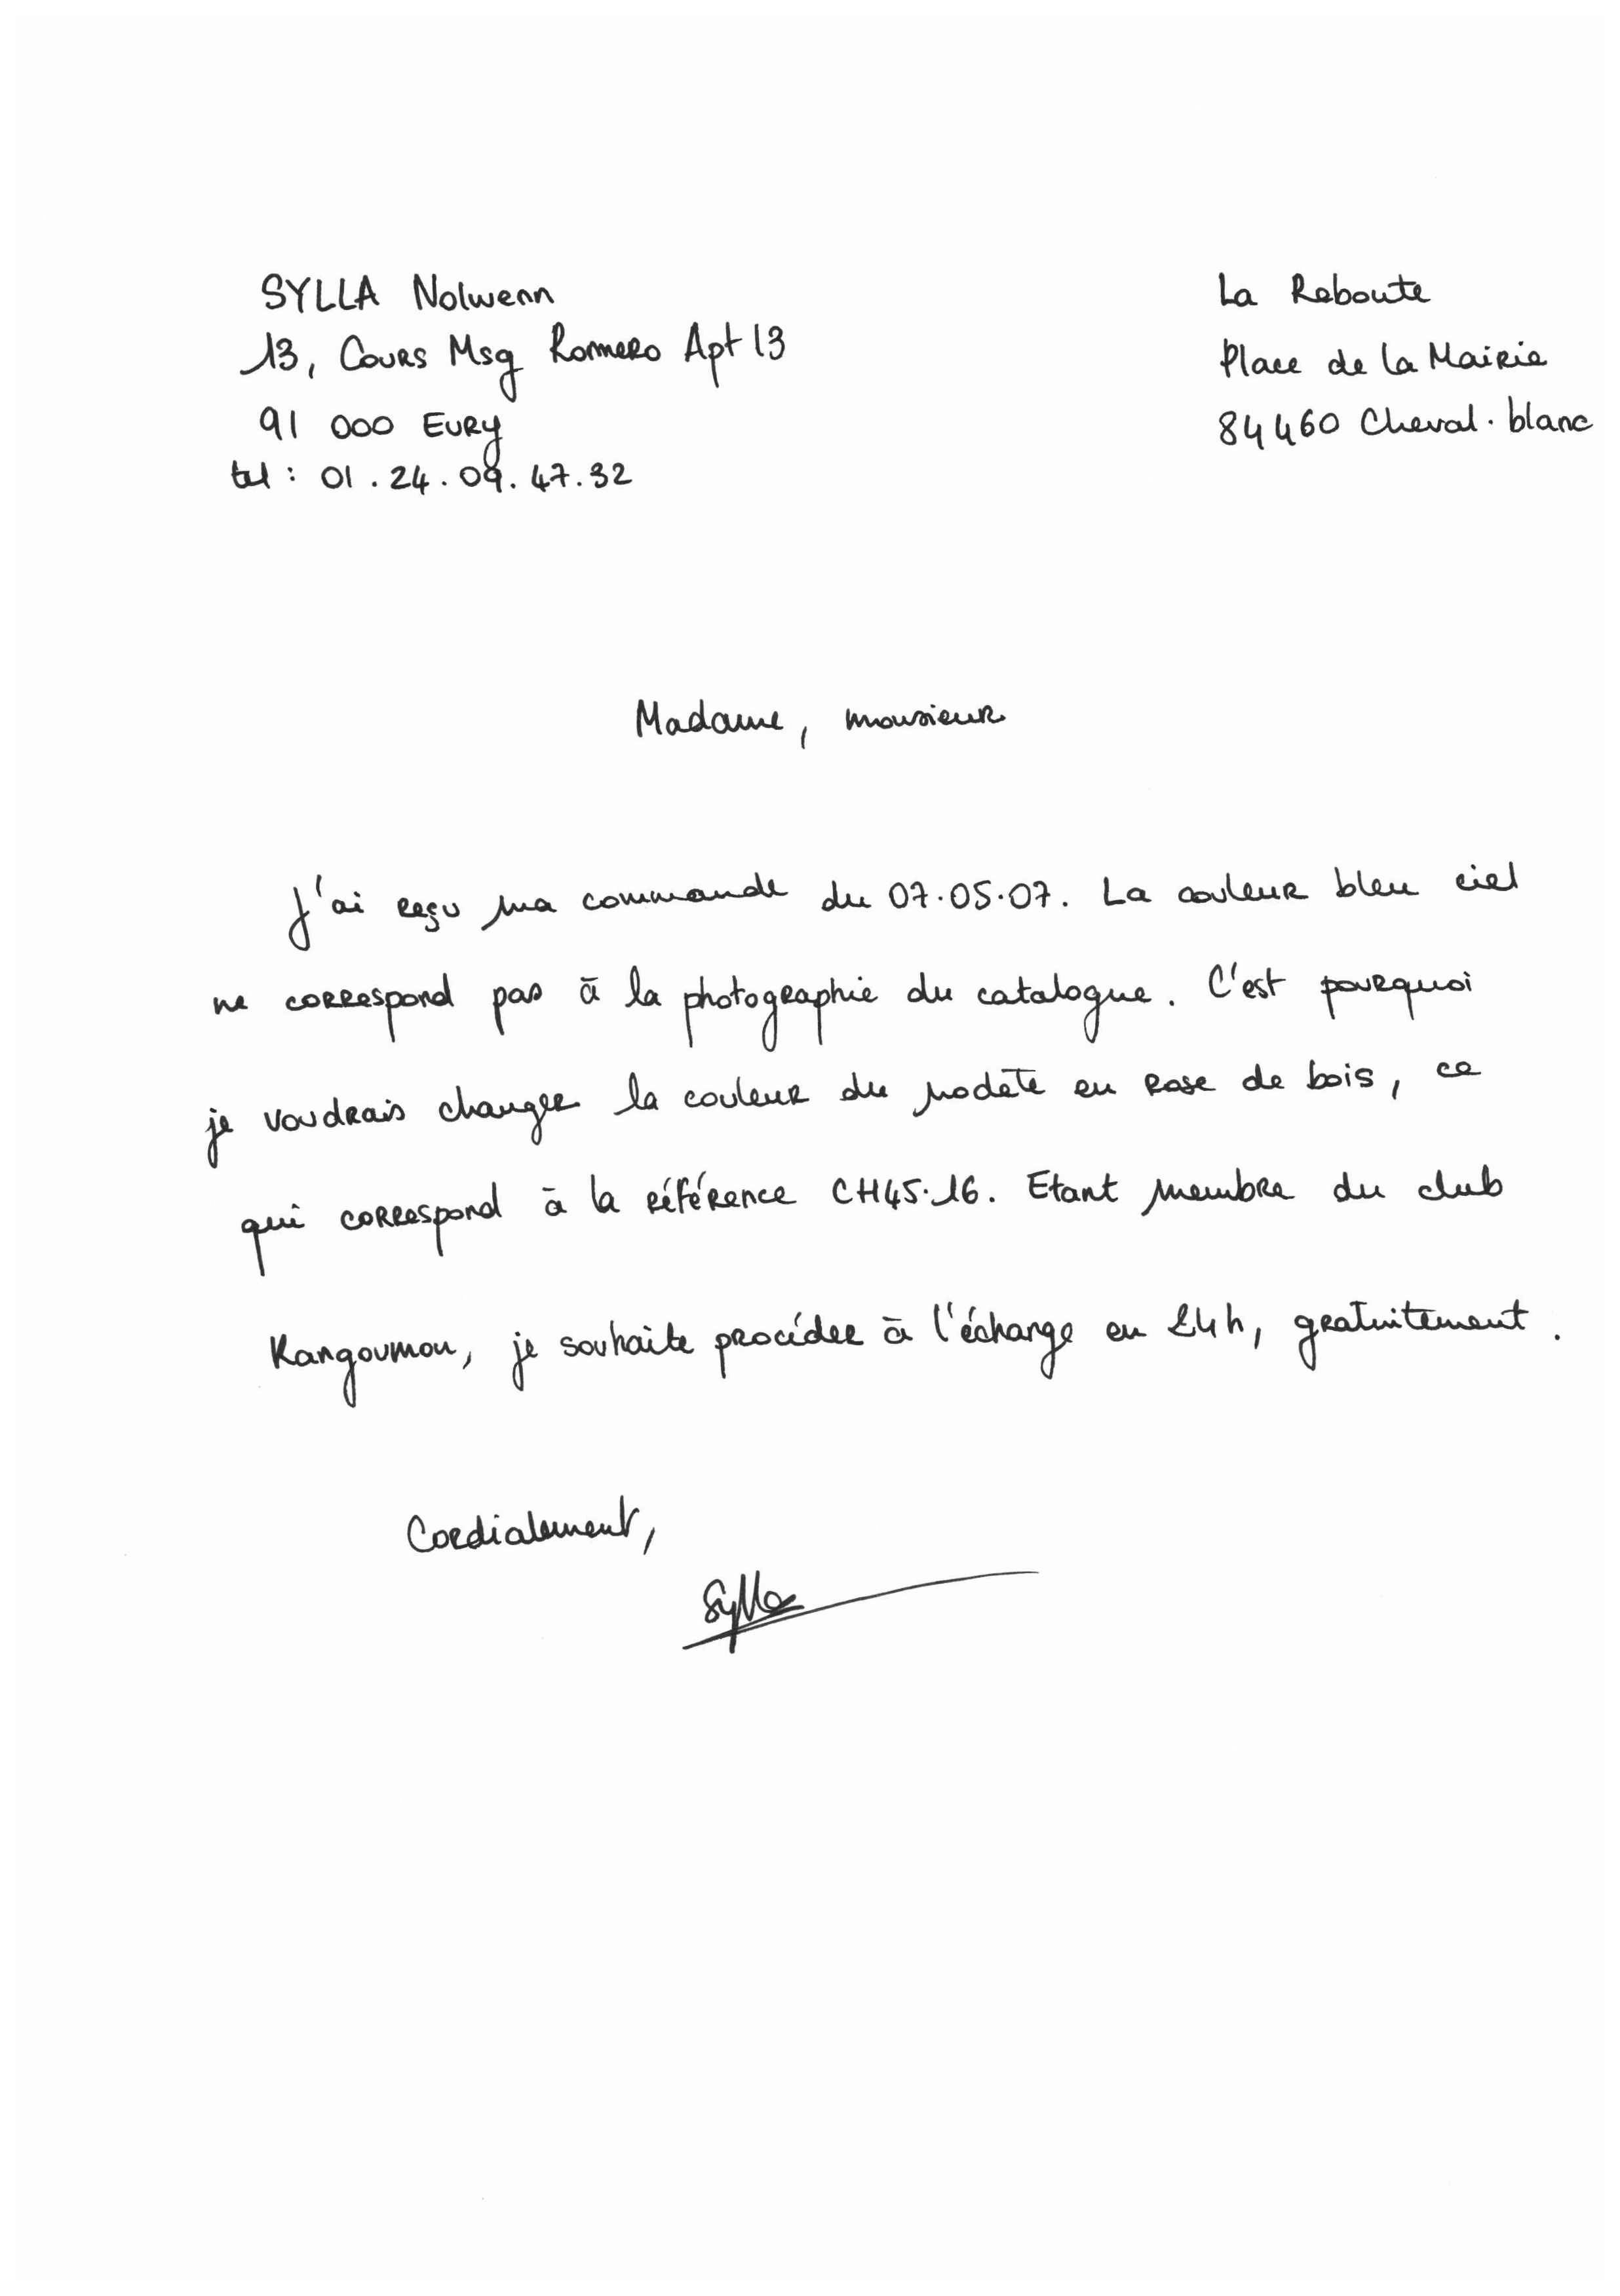 SYLLA Nolwenn
13, Cours Msg Romero Apt 13
91 000 EVRY
tel : 01.24.09.47.32
La Reboute
Place de la Mairie
84460 Cheval-blanc
Madame, monsieur
J'ai reçu ma commande du 07.05.07. La couleur bleu ciel
ne correspond pas à la photographie du catalogue. C'est pourquoi
je voudrais changer la couleur du modèle en rose de bois, ce
qui correspond à la référence CH45.16. Etant membre du club
Kangoumou, je souhaite procéder à l'échange en 24h, gratuitement.
Cordialement,
Sylla